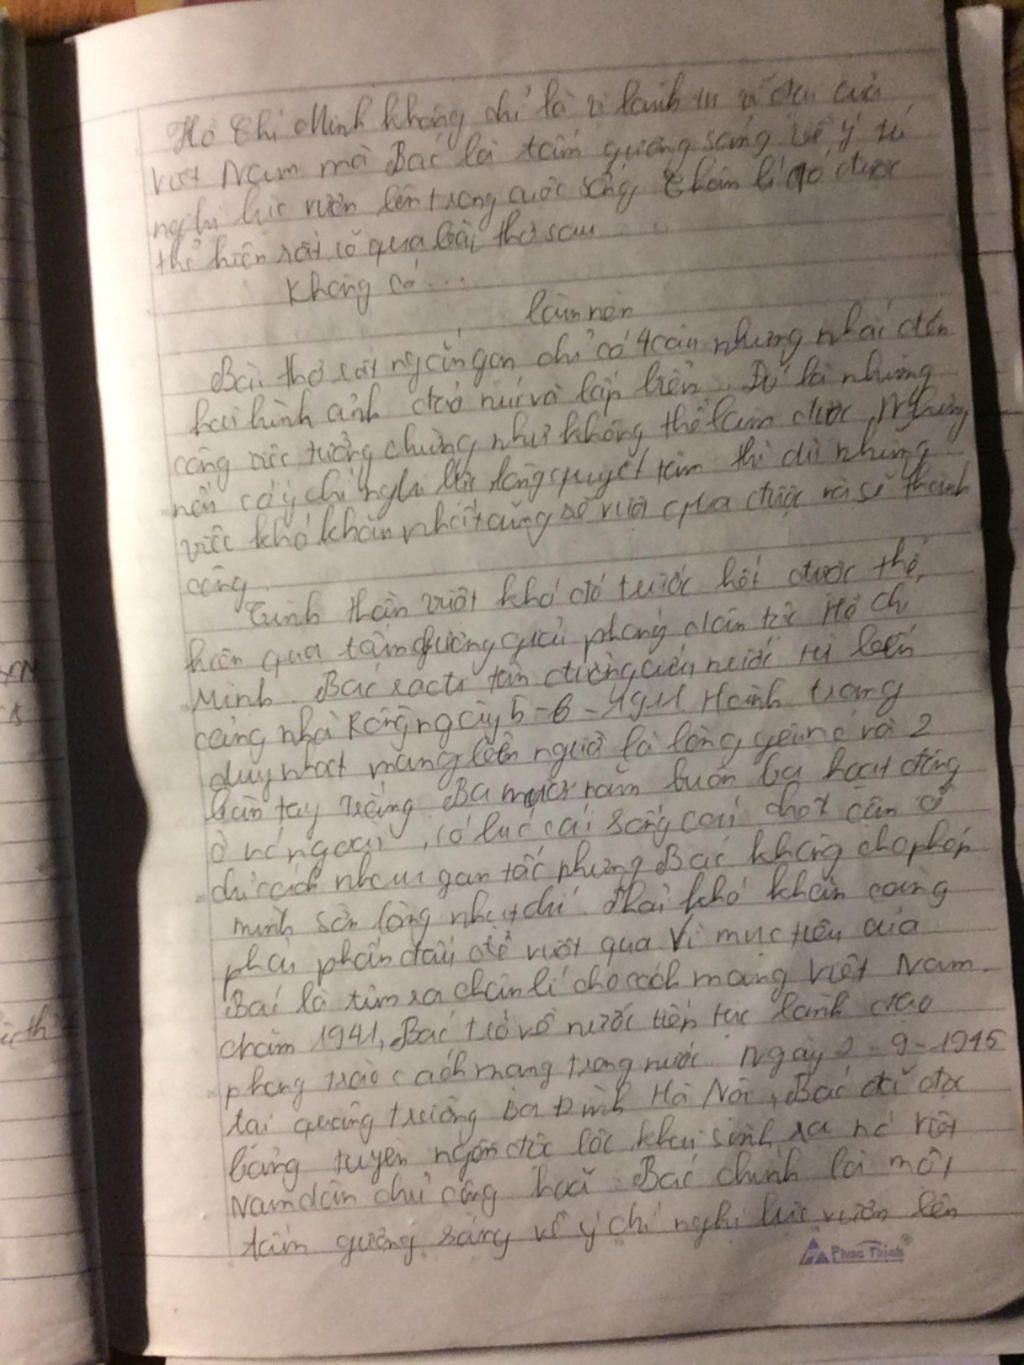 Hồ Chí Minh không chỉ là vị lãnh tụ vĩ đại của
Việt Nam mà Bác là tấm gương sáng về ý
nghị lực vươn lên trong cuộc sống Chân lí đó được
thể hiện rất rõ qua bài thơ sau
Không có ....
làm nên
Bài thơ rất ngắn gọn chỉ có 4 câu nhưng nhắc đến
hai hình ảnh đào núi và lấp biển. Đó là những
công việc tưởng chừng như không thể làm được, Nhưng
nếu có ý chí nghị lực lòng quyết tâm thì dù những
việc khó khăn nhất cũng sẽ vượt qua được và sẽ thành
công
Tinh thần vượt khó đó trước hết được thể
hiện qua tấm gương giải phóng dân tộc Hồ Chí
Minh. Bác ra đi tìm đường cứu nước từ bến
cảng nhà Rồng ngày 5-6-1911 Hành trang
duy nhất mang bên người là lòng yêu nc và 2
bàn tay trắng. Ba mươi năm buôn ba hoạt động
ở nc ngoài, có lúc cái sống cái chết cận ở
chỉ cách nhau gan tấc nhưng Bác không cho phép
mình sờn lòng nhụt chí. Phải khó khăn cũng
phải phấn đấu để vượt qua Vì mục tiêu của
Bác là tìm ra chân lí cho cách mạng Việt Nam.
1941, Bác trở về nước tiếp tục lãnh đạo
phong trào cách mạng trong nước. Ngày 2-9-1945
tại quảng trường Ba Đình Hà Nội, Bác đã đọc
bảng tuyên ngôn độc lập, khai sinh ra nc Việt
Nam dân chủ cộng hoà. Bác chính là một
tấm gương sáng về ý chí nghị lực vươn lên
Phuc Thinh